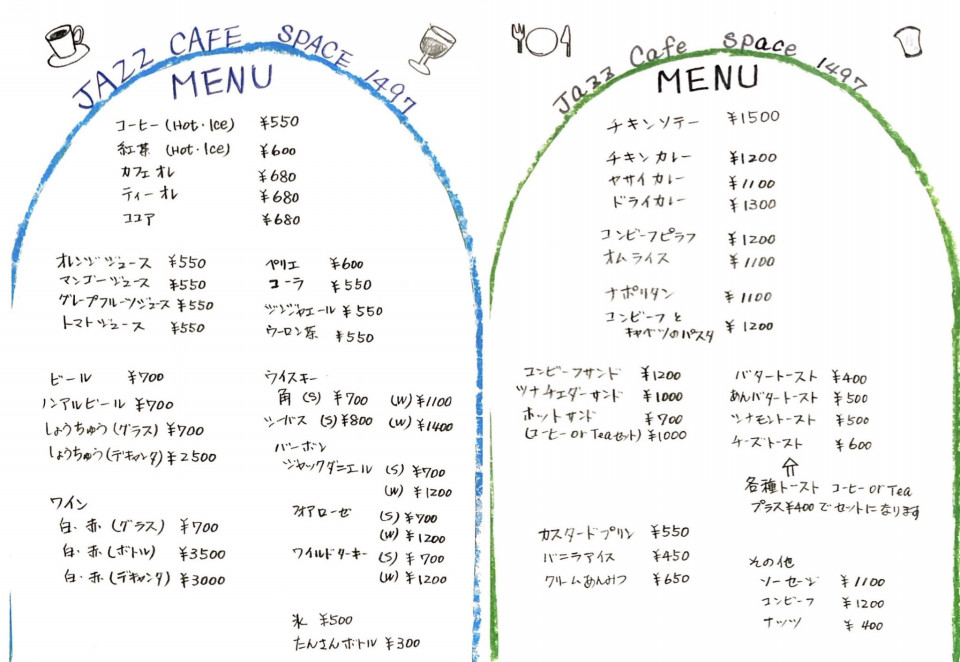 JAZZ CAFE SPACE 1497
MENU
コーヒー (Hot・Ice) ¥550
紅茶 (Hot・Ice) ¥600
カフェオレ ¥680
ティーオレ ¥680
ココア ¥680
オレンジジュース ¥550
マンゴージュース ¥550
グレープフルーツジュース ¥550
トマトジュース ¥550
ペリエ ¥600
コーラ ¥550
ジンジャエール ¥550
ウーロン茶 ¥550
ビール ¥700
ノンアルビール ¥700
しょうちゅう(グラス) ¥700
しょうちゅう(デキャンタ) ¥2500
ワイン
白・赤(グラス) ¥700
白・赤(ボトル) ¥3500
白・赤(デキャンタ) ¥3000
ウイスキー
角 (S) ¥700 (W) ¥1100
シーバス (S) ¥800 (W) ¥1400
バーボン
ジャックダニエル (S) ¥700
(W) ¥1200
フォアローゼ (S) ¥700
(W) ¥1200
ワイルドターキー (S) ¥700
(W) ¥1200
氷 ¥500
たんさんボトル ¥300
Jazz Cafe Space 1497
MENU
チキンソテー ¥1500
チキンカレー ¥1200
ヤサイカレー ¥1100
ドライカレー ¥1300
コンビーフピラフ ¥1200
オムライス ¥1100
ナポリタン ¥1100
コンビーフと
キャベツのパスタ ¥1200
コンビーフサンド ¥1200
ツナチェダーサンド ¥1000
ホットサンド ¥700
(コーヒー or Teaセット) ¥1000
バタートースト ¥400
あんバタートースト ¥500
ツナモントースト ¥500
チーズトースト ¥600
各種トースト コーヒー or Tea
プラス¥400でセットになります
カスタードプリン ¥550
バニラアイス ¥450
クリームあんみつ ¥650
その他
ソーセージ ¥1100
コンビーフ ¥1200
ナッツ ¥400